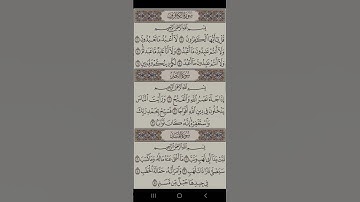 سورة الكافرون
بسم الله الرحمن الرحيم
قل يأيها الكفرون ۝ لا أعبد ما تعبدون ۝
ولا أنتم عبدون ما أعبد ۝ ولا أنا عابد ما عبدتم ۝
ولا أنتم عبدون ما أعبد ۝ لكم دينكم ولي دين ۝
سورة النصر
بسم الله الرحمن الرحيم
إذا جاء نصر الله والفتح ۝ ورأيت الناس
يدخلون في دين الله أفواجا ۝ فسبح بحمد ربك
واستغفره إنه كان توابا ۝
سورة المسد
بسم الله الرحمن الرحيم
تبت يدا أبي لهب وتب ۝ ما أغنى عنه ماله وما كسب ۝
سيصلى نارا ذات لهب ۝ وامرأته حمالة الحطب ۝
في جيدها حبل من مسد ۝